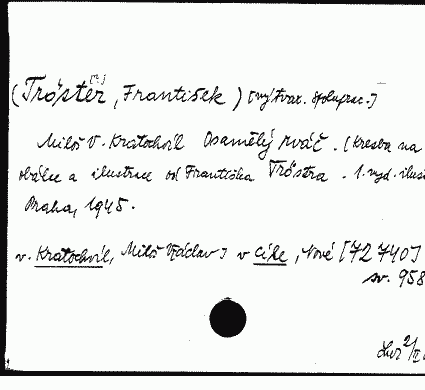 (Tröster, František) [výtvar. spoluprac.]
Miloš V. Kratochvíl Osamělý rváč. (Kresba na
obálce a ilustrace od Františka Tröstra. 1. vyd. ilust
Praha, 1945.
v. Kratochvíl, Miloš V[áclav] v cíle, Nové [72740]
sv. 958